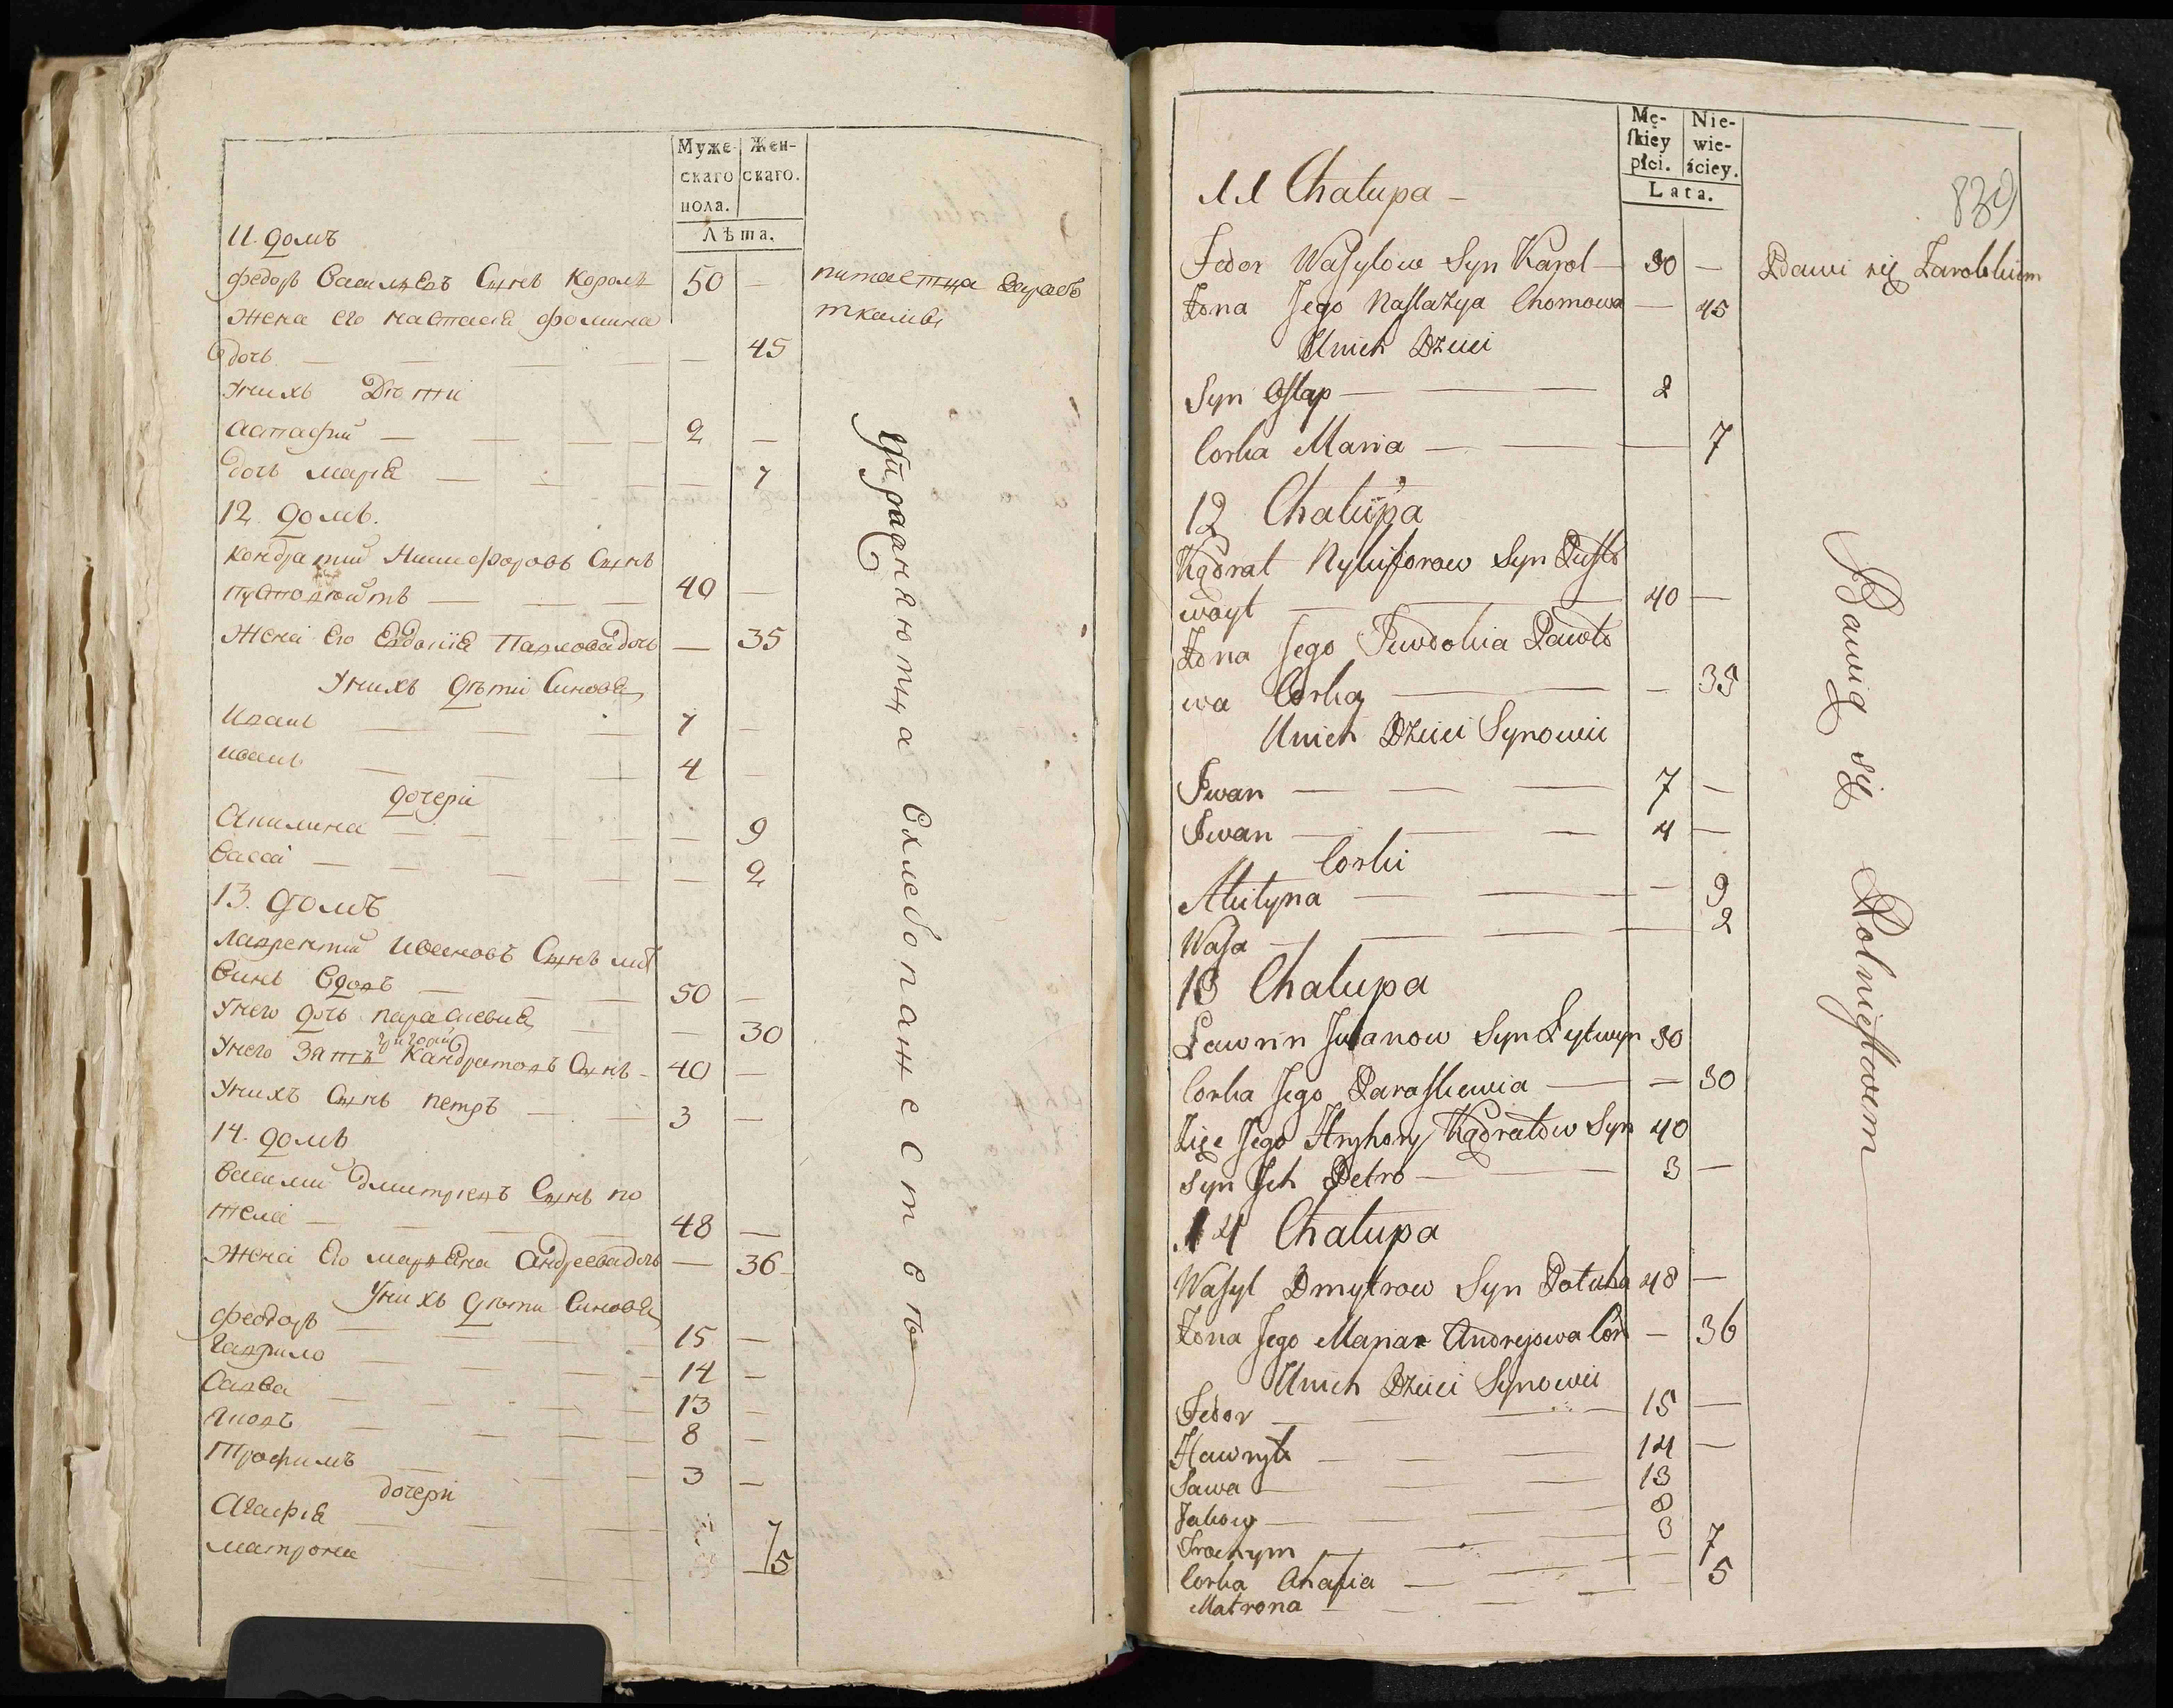 Муже-
скаго
пола.
Жен-
скаго.
Лѣта.
11. домъ
федоръ Василевъ Сынъ Король 50 —
питаетца Зарабо
ткамы
Жена его настасіа фомина
дочь — 45
Унихъ Дѣти
Астафий — 2 —
дочь маріа — 7
12. домъ.
Кондратий Никифоровъ Сынъ
пустовойтъ — 40 —
Жена Его Евдокіа Павлова дочь — 35
Унихъ дѣти Синови
Иванъ — 7 —
иванъ — 4 —
дочери
Акилина — 9
Васса — 2
13. домъ
лаврентий Ивановъ Сынъ лит
винъ Вдовъ — 50 —
Унего дочь параскевиа — 30
григорий
Унего Зять Кандратовъ Сынъ — 40 —
Унихъ Сынъ петръ — 3 —
14. домъ
Василий дмитриевъ Сынъ по
теха — 48 —
Жена Его марьяна Андреева дочь — 36
Унихъ дѣти Синови
феодоръ — 15 —
гаврило — 14 —
Савва — 13 —
Яковъ — 8 —
Трофимъ — 3 —
дочери
Агафіа — 7
матрона — 5
упражняютца вхлебопажествѣ
Mę-
skiey
płci.
Nie-
wie-
ściey.
Lata.
839
11 Chałupa —
Fedor Wasylow Syn Karol — 50 — Bawi się Zarobkiem
Żona Jego Nastazya Chomowa — 45
Unich Dzieci
Syn Ostap — 2
Corka Maria — 7
12 Chałupa
Kądrat Nykiforow Syn Pusto
woyt — 40 —
Żona Jego Jewdokia Pawło
wa Corka — 35
Unich Dzieci Synowie
Iwan — 7 —
Iwan — 4 —
Corki
Akilyna — 9
Wasa — 2
13 Chałupa
Ławrin Iwanow Syn Lytwyn 50
Corka Jego Paraskewia — 30
Zięc Jego Hryhory Kądratow Syn 40
Syn Ich Petro — 3 —
14 Chałupa
Wasyl Dmytrow Syn Potucha 48 —
Żona Jego Marian Andrejowa Cór — 36
Unich Dzieci Synowie
Fedor — 15 —
Hawryło — 14 —
Sawa — 13
Jakow — 8
Trochym — 3
Corka Ahafia — 7
Matrona — 5
Bawią się Rolnictwem